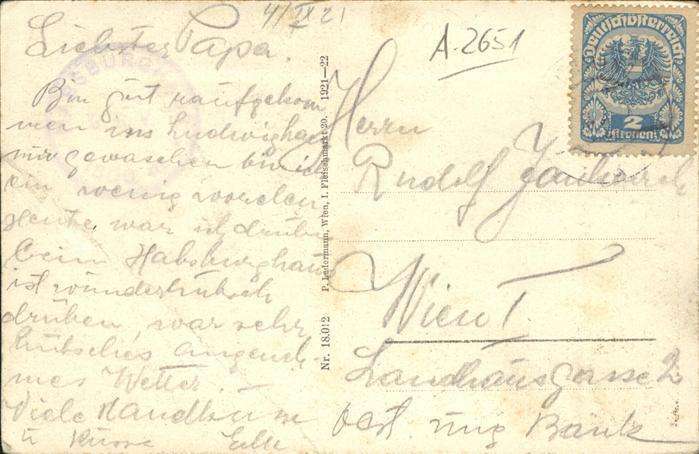 4/IX 21
Liebster Papa.
Bin gut raufgekom
men ins Ludwighaus
mir gewaschen bin ich
ein wenig worden
Heute war ich drüben
beim Habsburghaus
ist wunderhübsch
drüben, war sehr
hübsches angeneh-
mes Wetter.
Viele Handküsse
u Küsse
A.2651
Deutschösterreich
2
Kronen
Herrn
Rudolf
Wien I.
Landhausgasse 2
Öst. ung Bank
Nr. 18.012 P. Ledermann, Wien, I. Fleischmarkt 20. 1921—22